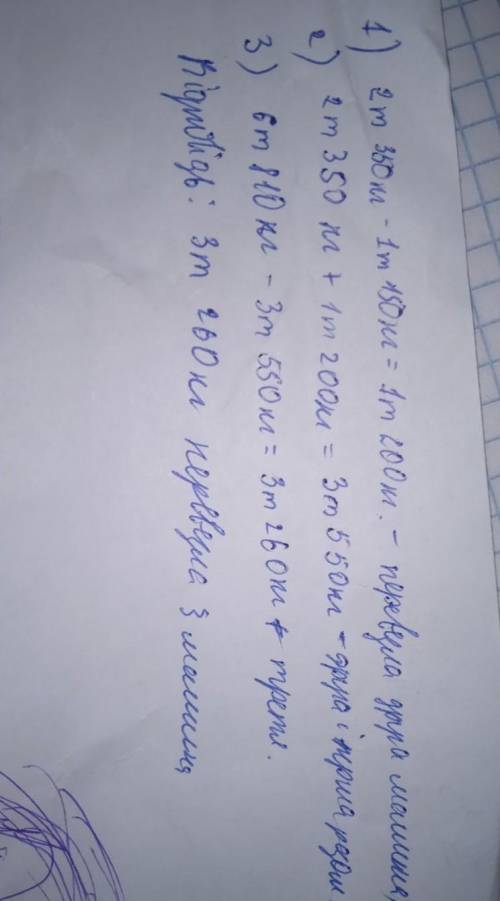 1) 2т 350кг - 1т 150кг = 1т 200кг. - перевезла друга машина,
2) 2т 350 кг + 1т 200кг = 3т 550кг - друга і перша разом
3) 6т 810кг - 3т 550кг = 3т 260кг - третя.
Відповідь: 3т 260кг перевезла 3 машина